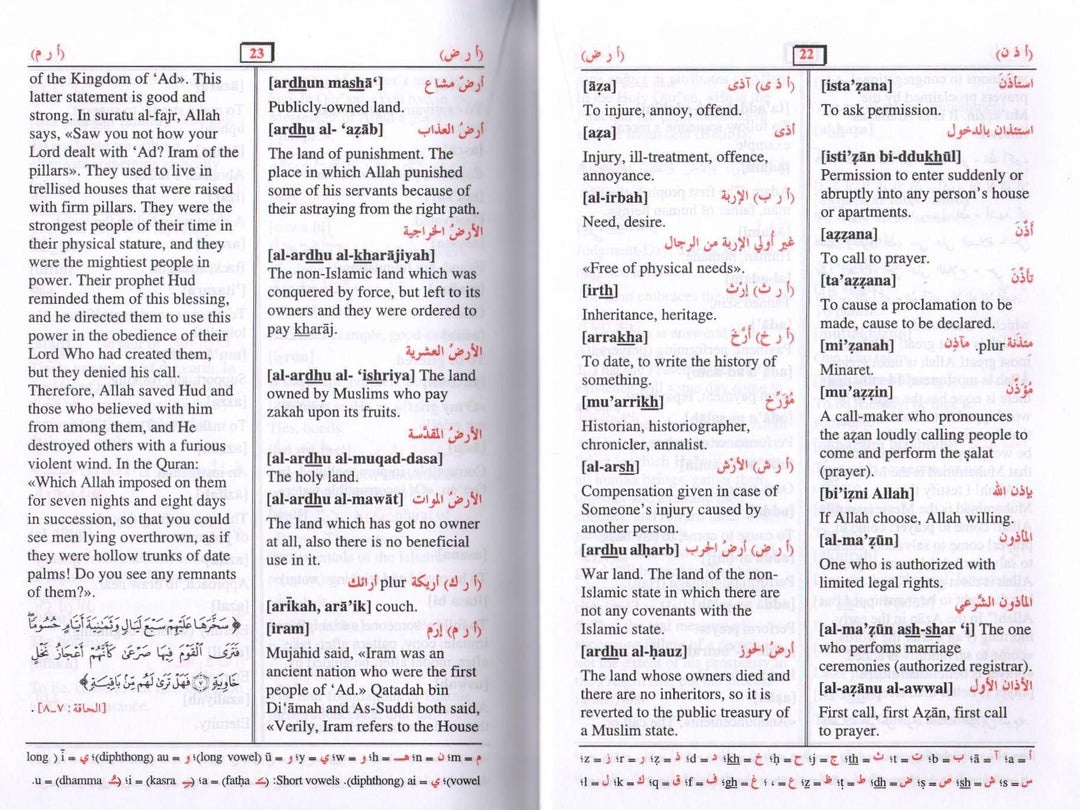 (أ ذ ن) 22 (أ ر ض)
[ista’ẓana] استأذَنَ
To ask permission.
استئذان بالدخول
[isti’ẓān bi-ddukhūl]
Permission to enter suddenly or
abruptly into any person’s house
or apartments.
[aẓẓana] أذَّنَ
To call to prayer.
[ta’aẓẓana] تأذَّنَ
To cause a proclamation to be
made, cause to be declared.
[mi’ẓanah] مئذنة plur. مآذن
Minaret.
[mu’aẓẓin] مُؤَذِّن
A call-maker who pronounces
the aẓan loudly calling people to
come and perform the ṣalat
(prayer).
[bi’iẓni Allah] بإذن الله
If Allah choose, Allah willing.
[al-ma’ẓūn] المأذون
One who is authorized with
limited legal rights.
المأذون الشَّرعي
[al-ma’ẓūn ash-shar ‘i] The one
who perfoms marriage
ceremonies (authorized registrar).
[al-aẓānu al-awwal] الأذان الأول
First call, first Aẓān, first call
to prayer.
[āẓa] (أ ذ ى) آذى
To injure, annoy, offend.
[aẓa] أذى
Injury, ill-treatment, offence,
annoyance.
[al-irbah] (أ ر ب) الإربة
Need, desire.
غير أولي الإربة من الرجال
«Free of physical needs».
[irth] (أ ر ث) إرْث
Inheritance, heritage.
[arrakha] (أ ر خ) أرَّخَ
To date, to write the history of
something.
[mu’arrikh] مُؤرِّخ
Historian, historiographer,
chronicler, annalist.
[al-arsh] (أ ر ش) الأرْش
Compensation given in case of
Someone’s injury caused by
another person.
[ardhu alḥarb] (أ ر ض) أرضُ الحرب
War land. The land of the non-
Islamic state in which there are
not any covenants with the
Islamic state.
[ardhu al-ḥauz] أرضُ الحوز
The land whose owners died and
there are no inheritors, so it is
reverted to the public treasury of
a Muslim state.
ا = a؛ آ = ā؛ ب = b؛ ت = t؛ ث = th؛ ج = j؛ ح = ḥ؛ خ = kh؛ د = d؛ ذ = ẓ؛ ر = r؛ ز = z؛
س = s؛ ش = sh؛ ص = ṣ؛ ض = dh؛ ط = ṭ؛ ظ = ẓ؛ ع = ‘؛ غ = gh؛ ف = f؛ ق = q؛ ك = k؛ ل = l؛
(أ ر ض) 23 (أ ر م)
[ardhun mashā‘] أرضٌ مشاع
Publicly-owned land.
[ardhu al- ‘aẓāb) أرضُ العذاب
The land of punishment. The
place in which Allah punished
some of his servants because of
their astraying from the right path.
الأرضُ الخراجية
[al-ardhu al-kharājiyah]
The non-Islamic land which was
conquered by force, but left to its
owners and they were ordered to
pay kharāj.
الأرضُ العشرية
[al-ardhu al- ‘ishriya] The land
owned by Muslims who pay
zakah upon its fruits.
الأرضُ المقدَّسة
[al-ardhu al-muqad-dasa]
The holy land.
[al-ardhu al-mawāt] الأرضُ الموات
The land which has got no owner
at all, also there is no beneficial
use in it.
(أ ر ك) أريكة plur أرائك
[arīkah, arā’ik] couch.
[iram] (أ ر م) إرَم
Mujahid said, «Iram was an
ancient nation who were the first
people of ‘Ad.» Qatadah bin
Di‘āmah and As-Suddi both said,
«Verily, Iram refers to the House
of the Kingdom of ‘Ad». This
latter statement is good and
strong. In suratu al-fajr, Allah
says, «Saw you not how your
Lord dealt with ‘Ad? Iram of the
pillars». They used to live in
trellised houses that were raised
with firm pillars. They were the
strongest people of their time in
their physical stature, and they
were the mightiest people in
power. Their prophet Hud
reminded them of this blessing,
and he directed them to use this
power in the obedience of their
Lord Who had created them,
but they denied his call.
Therefore, Allah saved Hud and
those who believed with him
from among them, and He
destroyed others with a furious
violent wind. In the Quran:
«Which Allah imposed on them
for seven nights and eight days
in succession, so that you could
see men lying overthrown, as if
they were hollow trunks of date
palms! Do you see any remnants
of them?».
﴿سَخَّرَهَا عَلَيْهِمْ سَبْعَ لَيَالٍ وَثَمَٰنِيَةَ أَيَّامٍ حُسُومًا
فَتَرَى ٱلْقَوْمَ فِيهَا صَرْعَىٰ كَأَنَّهُمْ أَعْجَازُ نَخْلٍ
خَاوِيَةٍ ٧ فَهَلْ تَرَىٰ لَهُم مِّنۢ بَاقِيَةٍ﴾
[الحاقة: ٧-٨] .
م = m؛ ن = n؛ هـ = h؛ و = w؛ ي = y؛ و = ū (long vowel)؛ و = au (diphthong)؛ ي = ī ( long
vowel)؛ ي = ai (diphthong). Short vowels: ـَ = a (fatḥa)؛ ـِ = i (kasra)؛ ـُ = u (dhamma).